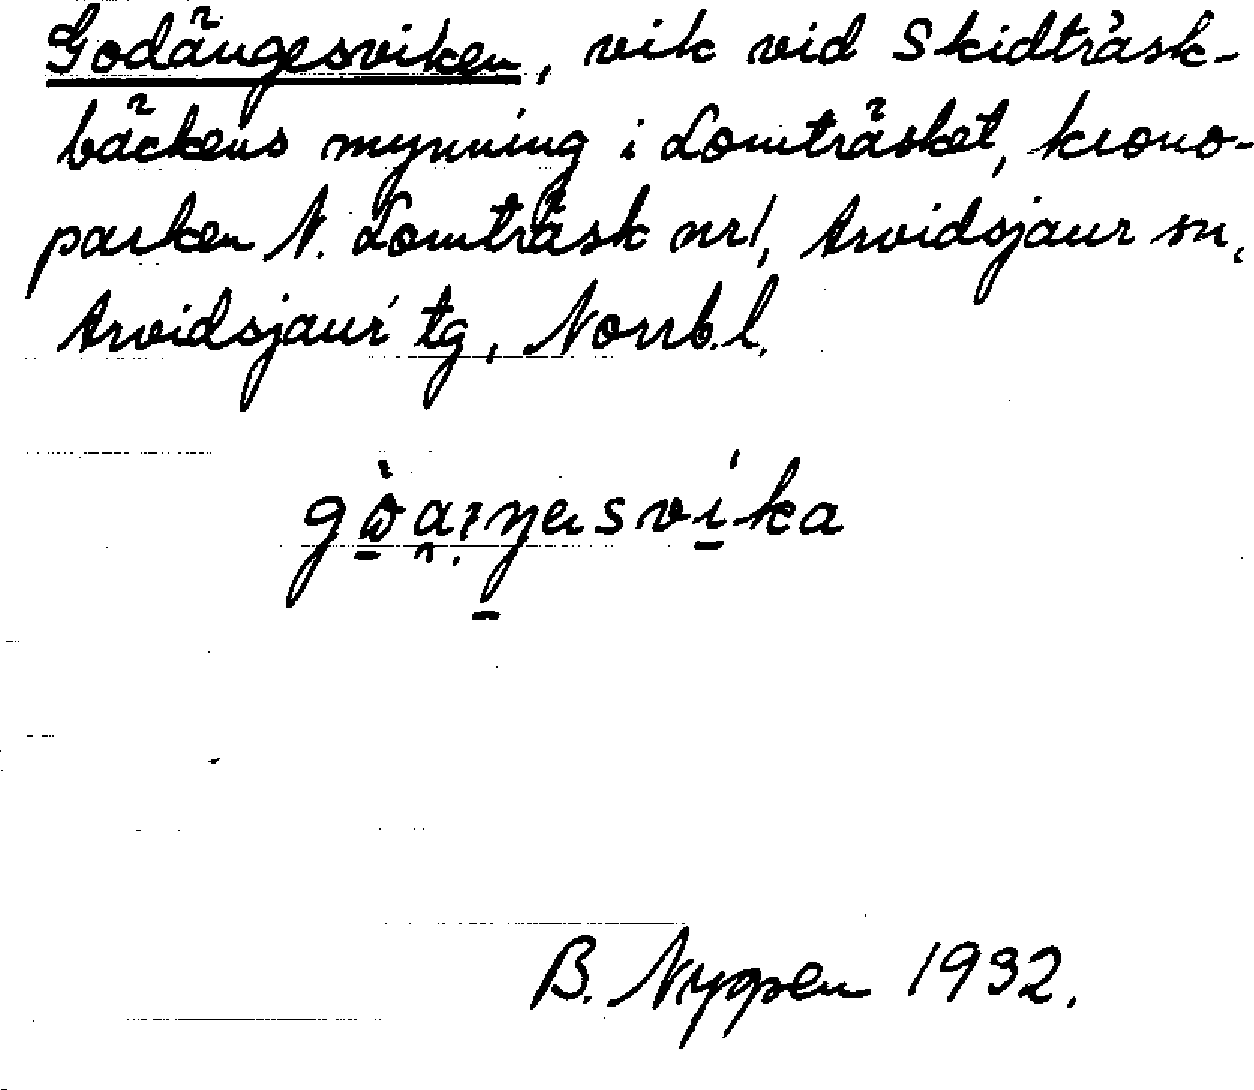 Godängesviken, vik vid Skidträsk-
bäckens mynning i Lomträsket, krono-
parken N. Lomträsk nr 1, Arvidsjaur sn,
Arvidsjaur tg, Norrb. l.
B. Nygren 1932.